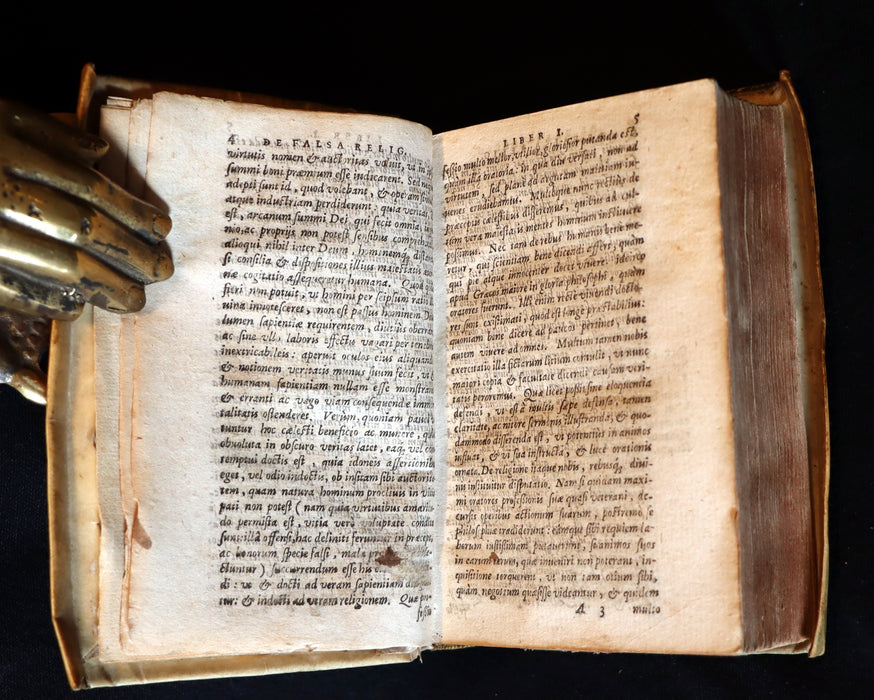 4 DE FALSA RELIG.
virtutis nomen & auctoritas valuit, ut in
summi boni præmium esse indicarent. Sed
adepti sunt id, quod volebant, & operam
atque industriam perdiderunt: quia veritas,
est, arcanum summi Dei, qui fecit omnia,
nio, ac proprijs non potest sensibus comprehen
alioqui nihil inter Deum, hominemq; distaret,
si consilia, & dispositiones illius maiestatis æter
næ cogitatio assequeretur humana. Quod
fieri non potuit, ut homini per seipsum ratio di
uina innotesceret, non est passus hominem Deus
lumen sapientiæ requirentem, diutius oberrare
ac sine vllo laboris effectu vagari per tenebras
inextricabileis: aperuit oculos eius aliquando
& notionem veritatis munus suum fecit, ut &
humanam sapientiam nullam esse monstraret
& erranti ac vago viam consequendæ immor
talitatis ostenderet. Verum, quoniam pauci
tuntur hoc cælesti beneficio ac munere, quod
obuoluta in obscuro veritas latet, eaq; vel con
temptui doctis est, quia idoneis assertionibus
eget, vel odio indoctis, ob insitam sibi austerita
tem, quam natura hominum procliuis in vitia
pati non potest (nam quia virtutibus amaritu
do permista est, vitia vero voluptate condita
sunt: illa offensi, hac deliniti feruntur in præceps,
ac bonorum specie falsi, mala pro
ctuntur) succurrendum esse his
di: ut & docti ad veram sapientiam
tur: & indocti ad veram religionem. Quæ pro-
fessio
LIBER I. 5
fessio multo melior, vtilior, gloriosior putanda est,
quàm illa oratoria: in qua diu versati, non ad
virtutem, sed planè ad argutam malitiam iu-
uenes erudiebamus. Multoque nunc rectius de
præceptis cælestibus disseremus, quibus ad cul-
tum veræ maiestatis mentes hominum instituere
possimus. Nec tam de rebus humanis bene me-
retur, qui scientiam bene dicendi affert, quàm
qui pie atque innocenter docet viuere: idcirco
apud Græcos maiore in gloria philosophi, quàm
oratores fuerunt. Illi enim rectè viuendi docto-
res sunt existimati, quod est longè præstabilius:
quoniam bene dicere ad paucos pertinet, bene
autem viuere ad omnes. Multum tamen nobis
exercitatio illa fictarum litium contulit, ut nunc
maiori copia & facultate dicendi causam veri-
tatis peroremus. Quæ licet possit sine eloquentia
defendi, ut est à multis sæpe defensa, tamen
claritate, ac nitore sermonis illustranda, & quo-
dammodo disserenda est, ut potentius in animos
influat, & vi sua instructa, & luce orationis
ornata. De religione itaque nobis, rebusq; diui-
nis instituitur disputatio. Nam si quidam maxi-
mi oratores professionis suæ quasi veterani, de-
cursis operibus actionum suarum, postremo se
philosophiæ tradiderunt: eamque sibi requiem la-
borum iustissimam putauerunt, si animos suos
in earum rerum, quæ inueniri non poterant, in-
quisitione torquerent, ut non tam otium sibi,
quàm negotium quæsisse videantur, & quidem
A 3 multo